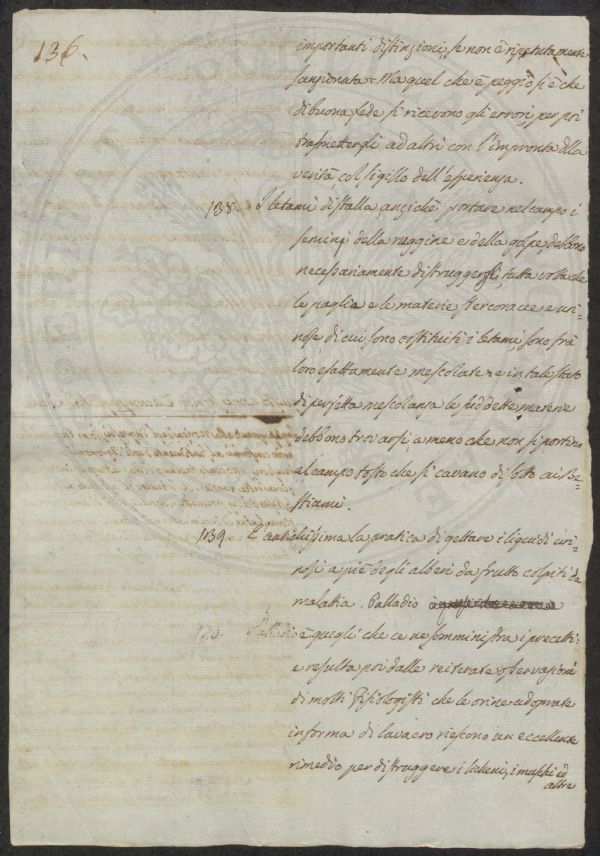 136.
importanti distinzioni, se non è ripetutamente
sanzionata. Ma quel che è peggio si è che
di buona fede si ricevono gli errori, per poi
trasmettergli ad altri con l'impronta della
verità, col sigillo dell'esperienza.
138. I letami di stalla, anzichè portare nel campo i
semini della ruggine e della golpe, debbono
necessariamente distruggergli, tutta volta che
le paglie e le materie stercoracee e uri-
nose di cui sono costituiti i letami, sono frà
loro esattamente mescolate: e in tale stato
di perfetta mescolanza le suddette materie
debbono trovarsi, a meno che non si portino
al campo tosto che si cavano di sotto ai Be-
stiami.
139 È antichissima la pratica di gettare i liquidi uri-
nosi a piè degli alberi da frutto colpiti da
malatia. Palladio
Palladio è quegli che ce ne somministra i precetti:
e resulta poi dalle reiterate osservazioni
di molti Fisiologisti che le orine adoprate
in forma di lavacro riescono un eccellente
rimedio per distruggere i licheni, i muschi ed
altre